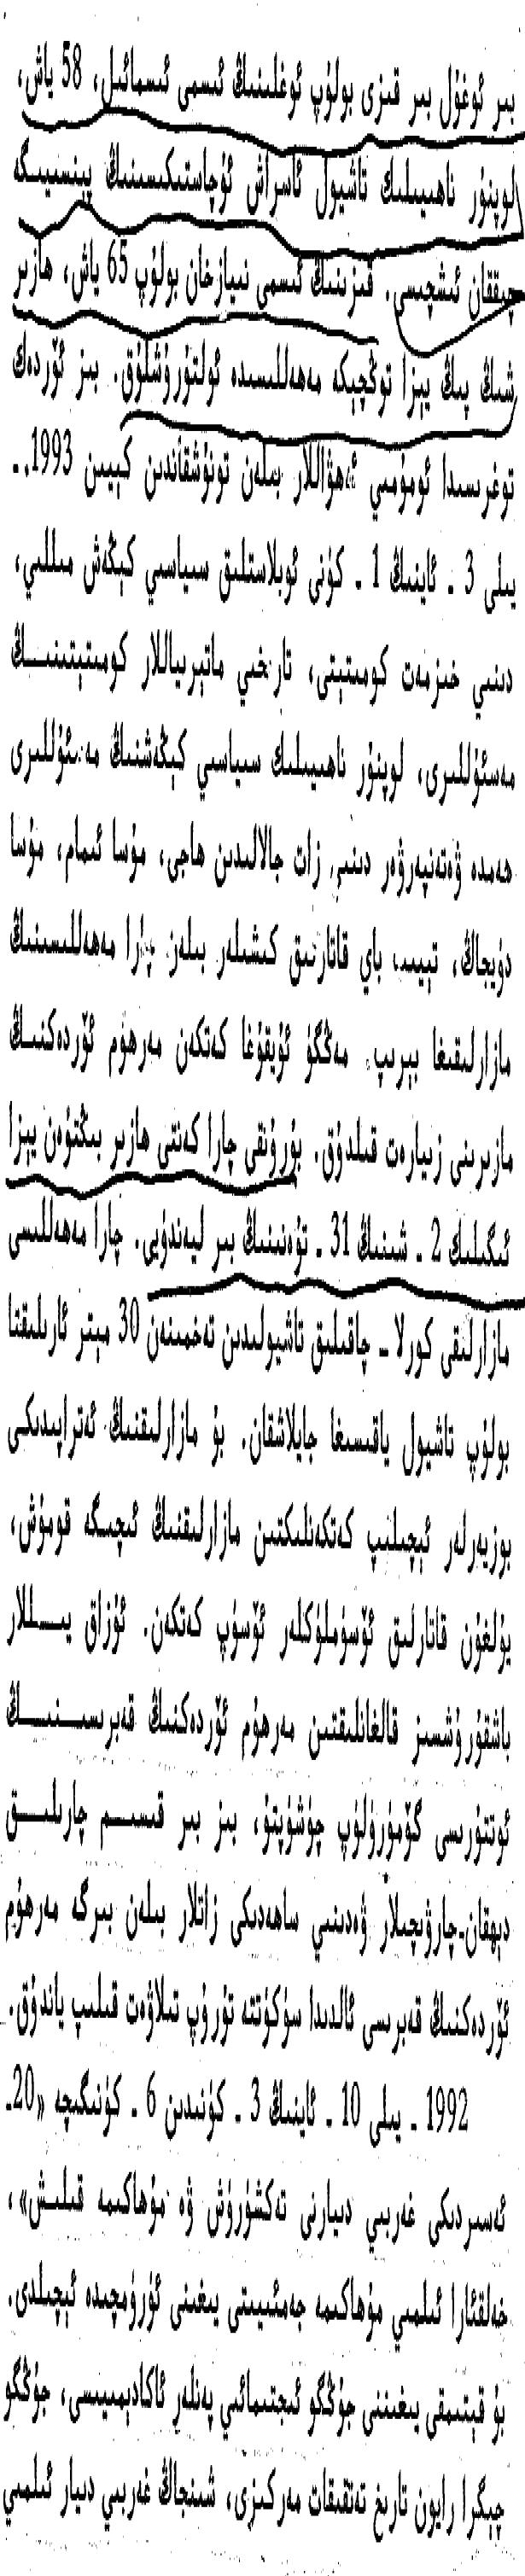 بىر ئوغۇل بىر قىزى بولۇپ ئوغلىنىڭ ئىسمى ئىسمائىل، 58 ياش،
لوپنۇر ناھىيىلىك تاشيول ئاسراش ئۇچاستىكىسىنىڭ پېنسىيىگە
چىققان ئىشچىسى. قىزىنىڭ ئىسمى نىيازخان بولۇپ 65 ياش، ھازىر
شىڭ پىڭ يېزا توڭچېكە مەھەللىسىدە ئولتۇرۇشلۇق. بىز ئۆردەك
توغرىسىدا ئومۇمىي ئەھۋاللار بىلەن تونۇشقاندىن كېيىن 1993. ـ
يىلى 3 ـ ئاينىڭ 1 ـ كۈنى ئوبلاستلىق سىياسىي كېڭەش مىللىي،
دىنىي خىزمەت كومىتېتى، تارىخىي ماتېرىياللار كومىتېتىنىڭ
مەسئۇللىرى، لوپنۇر ناھىيىلىك سىياسىي كېڭەشنىڭ مەسئۇللىرى
ھەمدە ۋەتەنپەرۋەر دىنىي زات جالالىدىن ھاجى، مۇسا ئىمام، مۇسا
دۇيجاڭ، تېيىپ باي قاتارلىق كىشىلەر بىلەن چارا مەھەللىسىنىڭ
مازارلىقىغا بېرىپ، مەڭگۈ ئۇيقۇغا كەتكەن مەرھۇم ئۆردەكنىڭ
مازىرىنى زىيارەت قىلدۇق. بۇرۇنقى چارا كەنتى ھازىر بىڭتۇەن يېزا
ئىگىلىك 2 ـ شىنىڭ 31 ـ تۇەنىنىڭ بىر ليەندۇيى. چارا مەھەللىسى
مازارلىقى كورلا ـ چاقىلىق تاشيولىدىن تەخمىنەن 30 مېتر ئارىلىقتا
بولۇپ تاشيول ياقىسىغا جايلاشقان. بۇ مازارلىقنىڭ ئەتراپىدىكى
بوزيەرلەر ئېچىلىپ كەتكەنلىكتىن مازارلىقنىڭ ئىچىگە قومۇش،
يۇلغۇن قاتارلىق ئۆسۈملۈكلەر ئۆسۈپ كەتكەن. ئۇزاق يىللار
باشقۇرۇشسىز قالغانلىقتىن مەرھۇم ئۆردەكنىڭ قەبرىسىنىڭ
ئوتتۇرىسى گۆمۈرۈلۈپ چۈشۈپتۇ، بىز بىر قىسىم چارىلىق
دېھقان-چارۋىچىلار ۋەدىنىي ساھەدىكى زاتلار بىلەن بىرگە مەرھۇم
ئۆردەكنىڭ قەبرىسى ئالدىدا سۈكۈتتە تۇرۇپ تىلاۋەت قىلىپ ياندۇق.
1992 ـ يىلى 10 ـ ئاينىڭ 3 ـ كۈنىدىن 6 ـ كۈنىگىچە «20ـ
ئەسىردىكى غەربىي دىيارنى تەكشۈرۈش ۋە مۇھاكىمە قىلىش»،
خەلقئارا ئىلمىي مۇھاكىمە جەمئىيىتى يىغىنى ئۈرۈمچىدە ئېچىلدى.
بۇ قېتىمقى يىغىننى جۇڭگو ئىجتىمائىي پەنلەر ئاكادېمىيىسى، جۇڭگو
چېگرا رايون تارىخ تەتقىقات مەركىزى، شىنجاڭ غەربىي دىيار ئىلمىي